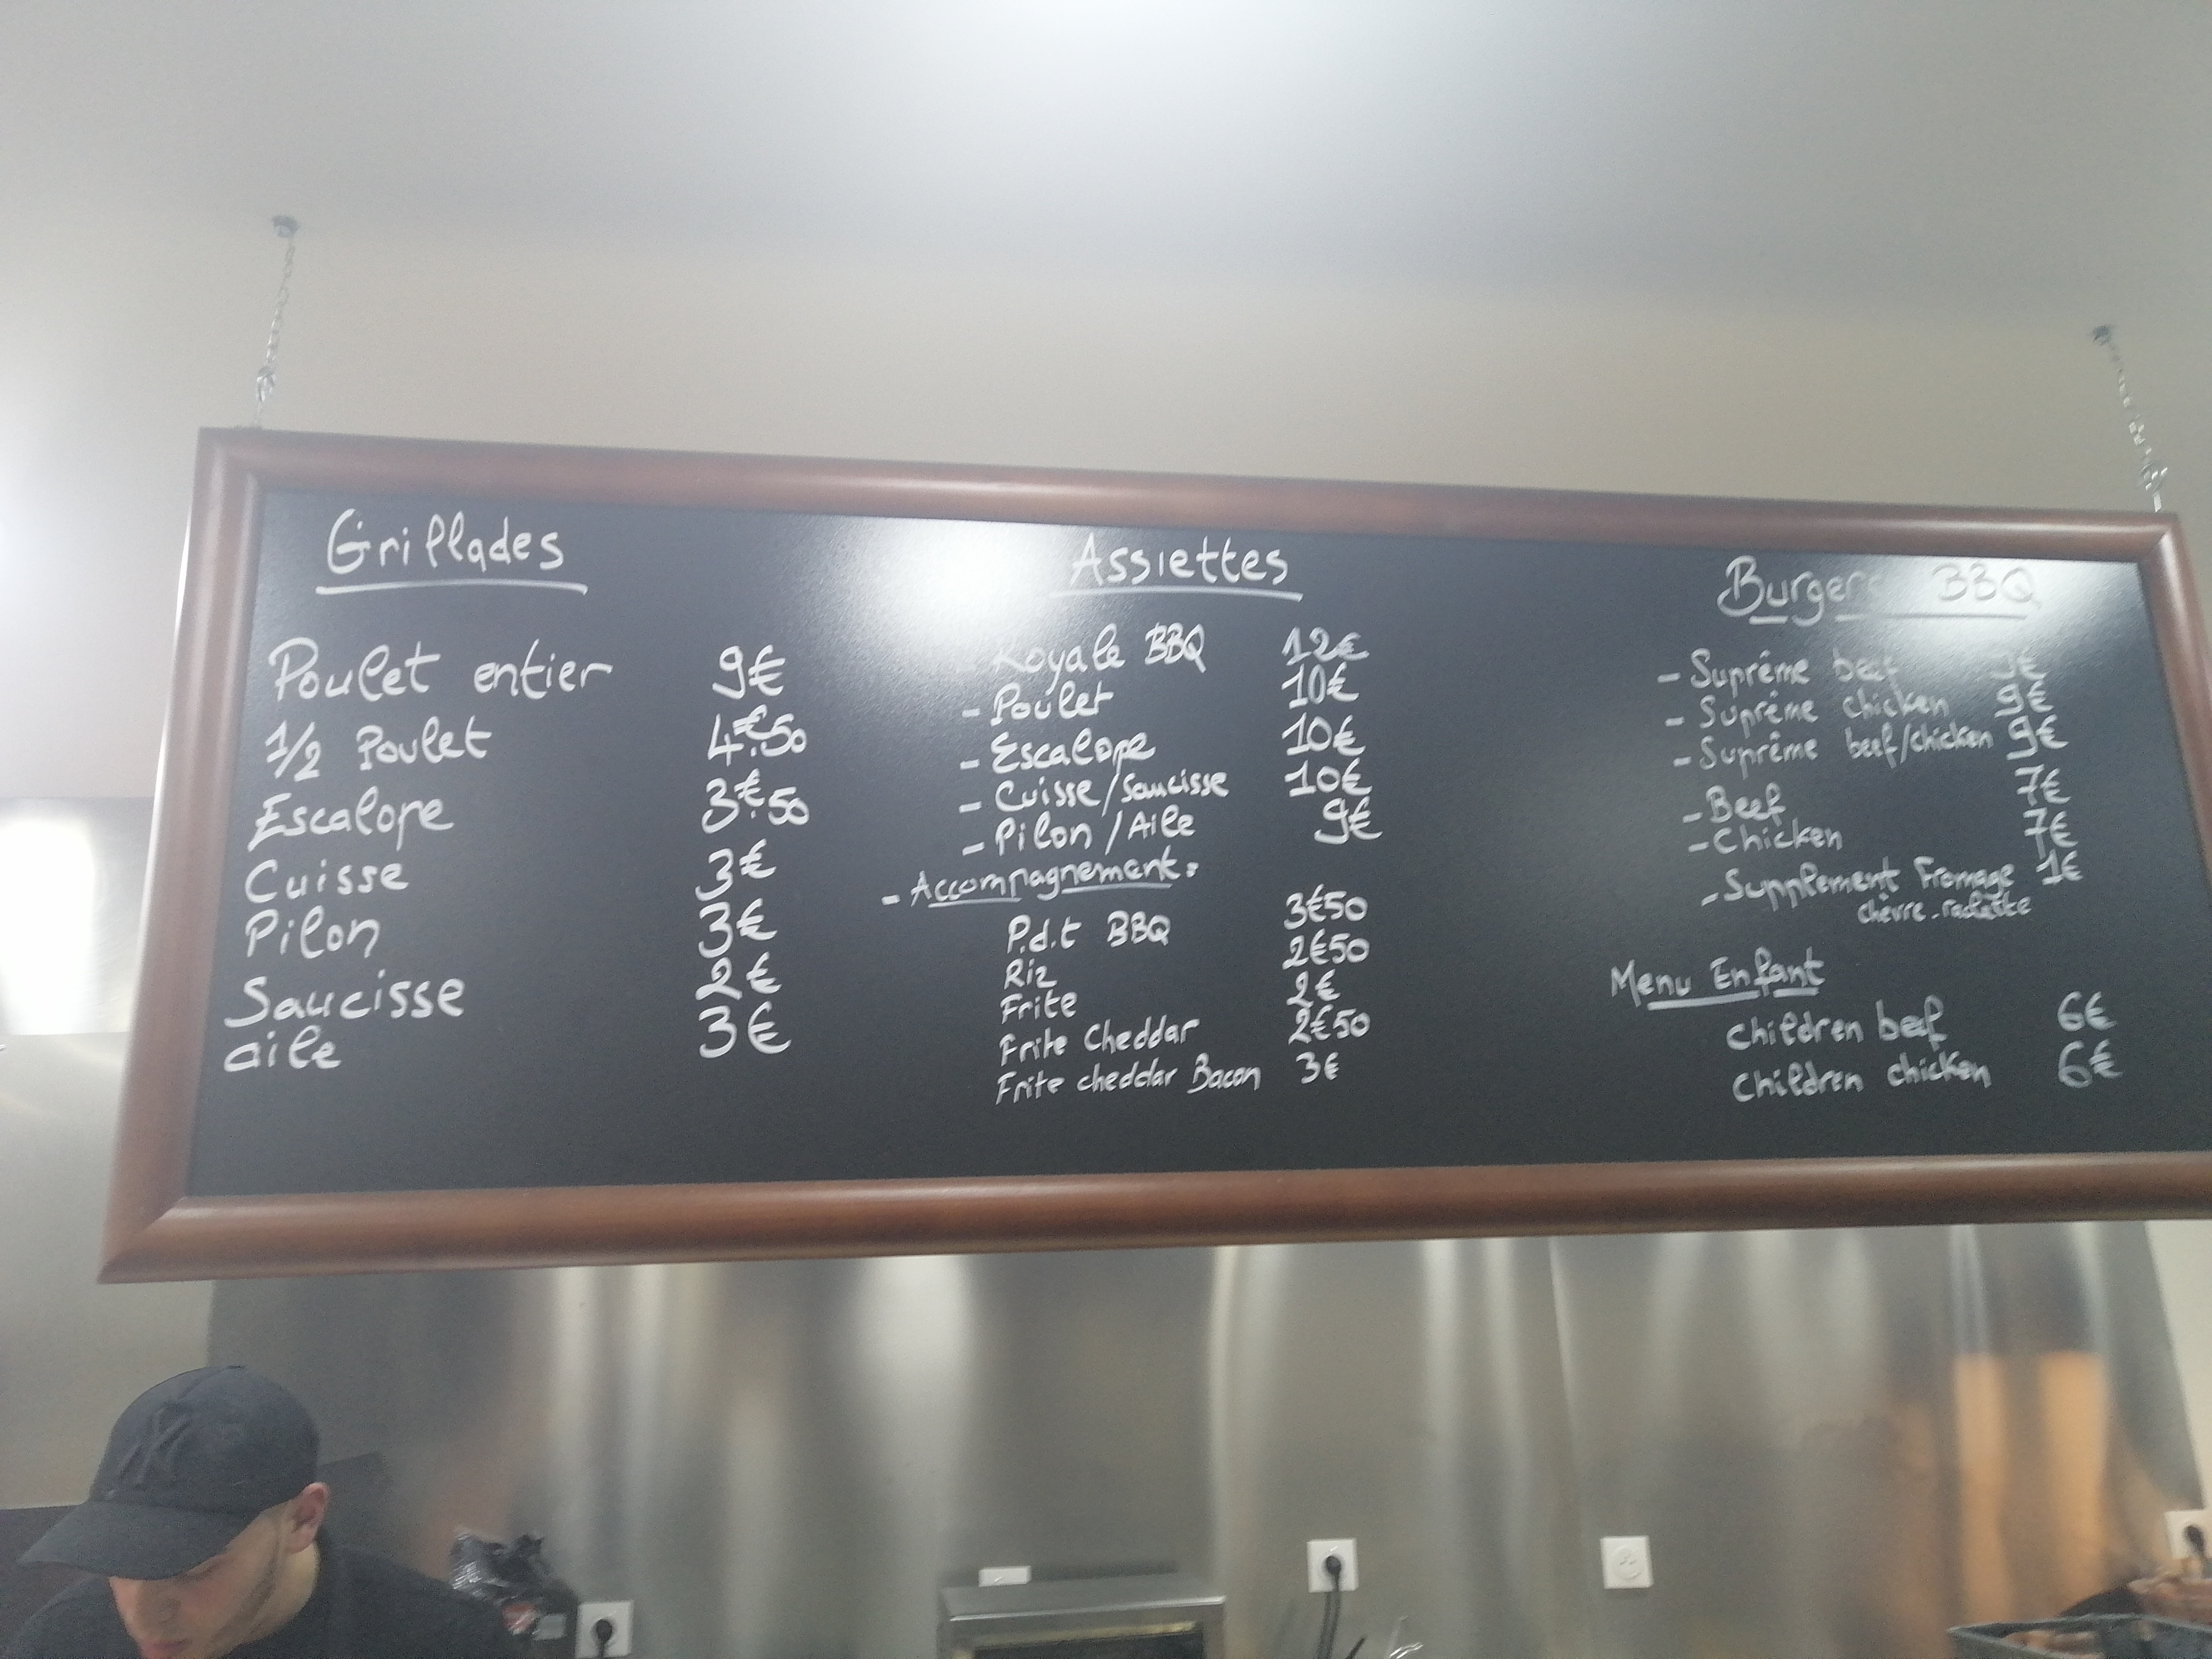 Grillades
Poulet entier 9€
1/2 Poulet 4€.50
Escalope 3€.50
Cuisse 3€
Pilon 3€
Saucisse 2€
aile 3€
Assiettes
- Royale BBQ 12€
- Poulet 10€
- Escalope 10€
- Cuisse/Saucisse 10€
- Pilon/Aile 9€
- Accompagnement:
P.d.t BBQ 3€50
Riz 2€50
Frite 2€
Frite Cheddar 2€50
Frite cheddar Bacon 3€
Burgers BBQ
- Suprême beef 9€
- Suprême chicken 9€
- Suprême beef/chicken 9€
- Beef 7€
- Chicken 7€
- Supplement Fromage 1€
chèvre-raclette
Menu Enfant
children beef 6€
children chicken 6€
NY